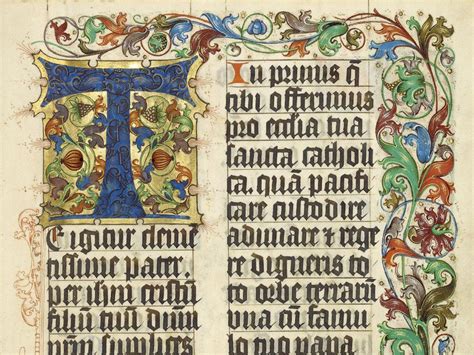 T
E igitur cleme
tissime pater.
per ihm cristũ
filiũ tuũ dñm
nr̃m supplices
In primis q̃
tibi offerimus
pro ecclia tua
sancta catholi
ca. quã pacifi
care custodire
adunare ⁊ rege
re digneris to
to orbe terrarũ
vna cũ famu
lo tuo papa